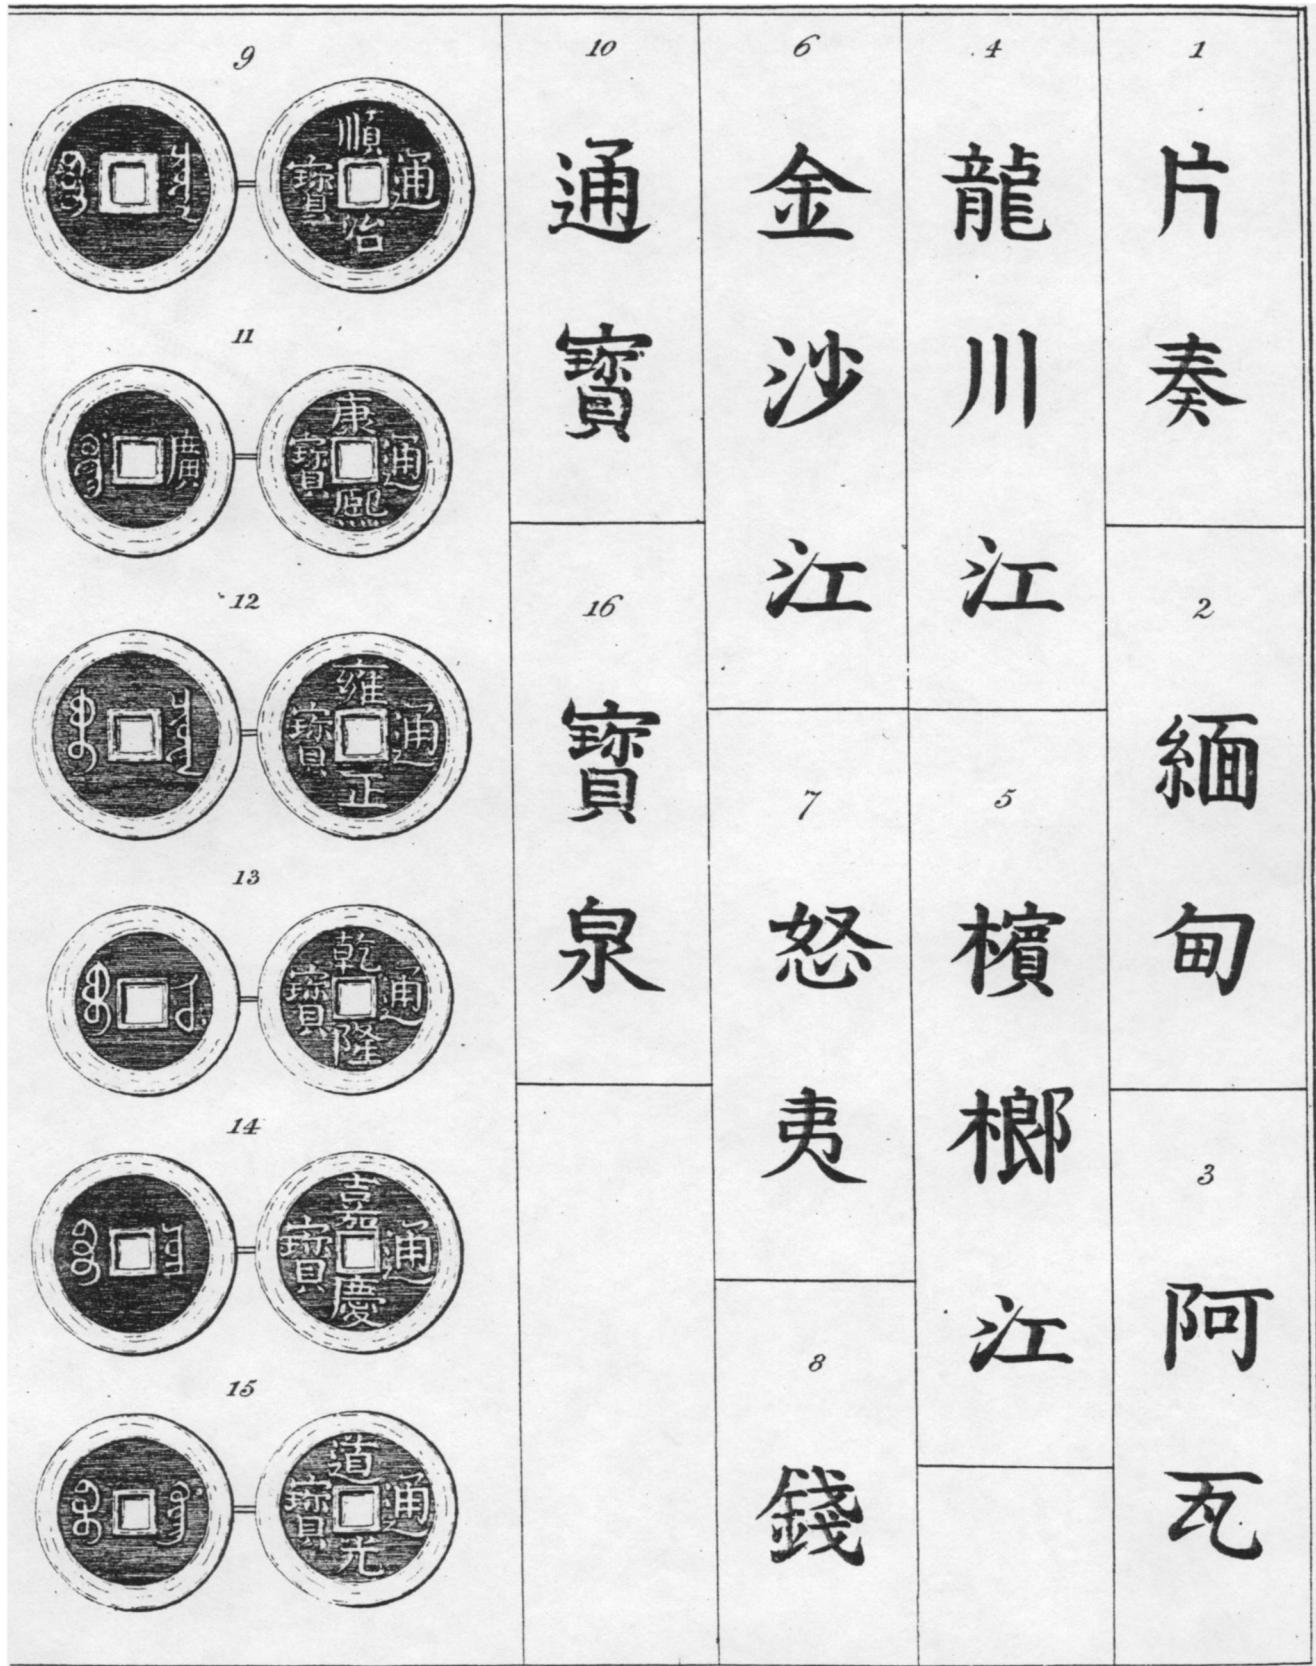 1
片奏
2
緬甸
3
阿瓦
4
龍川江
5
檳榔江
6
金沙江
7
怒夷
8
錢
10
通寶
16
寶泉
9
順治通寶
11
康熙通寶
廣
12
雍正通寶
13
乾隆通寶
14
嘉慶通寶
15
道光通寶